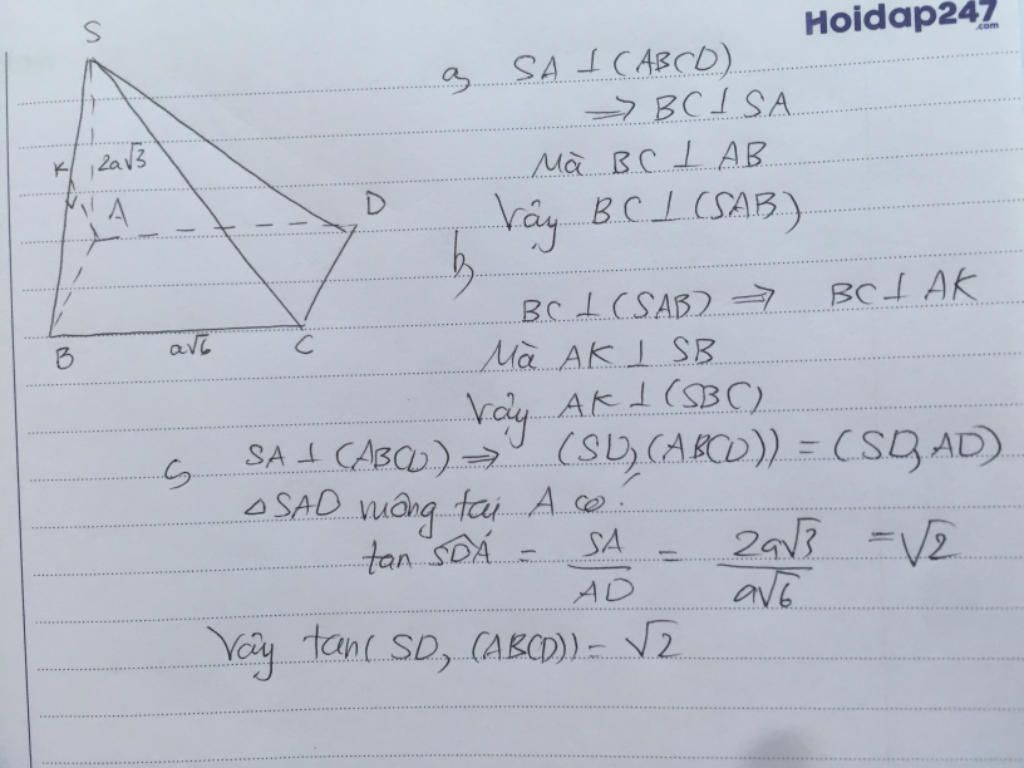 Hoidap247
.com
S
a, SA ⊥ (ABCD)
⇒ BC ⊥ SA
Mà BC ⊥ AB
Vậy BC ⊥ (SAB)
K
2a√3
A
D
B
a√6
C
b,
BC ⊥ (SAB) ⇒ BC ⊥ AK
Mà AK ⊥ SB
Vậy AK ⊥ (SBC)
c, SA ⊥ (ABCD) ⇒ (SD, (ABCD)) = (SD, AD)
△SAD vuông tại A có:
tan SDA = SA/AD = 2a√3/a√6 = √2
Vậy tan(SD, (ABCD)) = √2